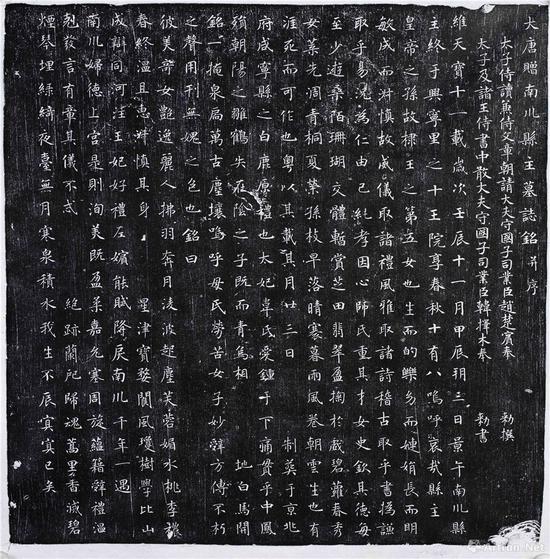 大唐贈南川縣主墓誌銘并序
太子侍讀兼侍文章朝請大夫守國子司業臣趙楚賓奉 勅撰
太子及諸王侍書中散大夫守國子司業臣韓擇木奉 勅書
維天寶十一載歲次壬辰十一月甲辰朔三日景午南川縣
主終于興寧里之十王院享春秋十有八嗚呼哀哉縣主
皇帝之孫故棣王之第五女也生而的皪幼而婕娟長而明
敏成而淑慎故威儀取諸禮風雅取諸詩稽古取乎書撝謙
取乎易況為仁由己純孝因心師氏重其才女史欽其德每
至少遊桑陌珊瑚交體暫賞芝田翡翠盈掬於戲碧蘿春秀
女菜先凋青桐夏榮孫枝早落晴褰暮雨風卷朝雲生也有
涯死而可作也粵以其載其月廿三日 制葬于京兆
府咸寧縣之白鹿原禮也太妃韋氏愛鍾于下痛貫乎中鳳
殞朝陽之雛鶴失在陰之子既而青烏相 地白馬開
銘一掩泉扃萬古塵壤嗚呼母氏勞苦女子妙辭方傳不朽
之聲用刊無媿之色也銘曰
彼美齊女艷逸麗人拂羽奔月淩波起塵芙蓉媚水桃李襛
春終溫且惠淑慎其身 星津寶婺閬風瓊樹學比山
成辯同河注王妃好禮左嬪能賦降戾南川千年一遇
南川婦德上宮是則洵美既盈柔嘉允塞周旋蘊藉辭禮溫
剋發言有章其儀不忒 絕跡蘭阤歸魂蒿里香滅碧
煙琴埋綠綺夜臺無月寒泉積水我生不辰冥冥已矣